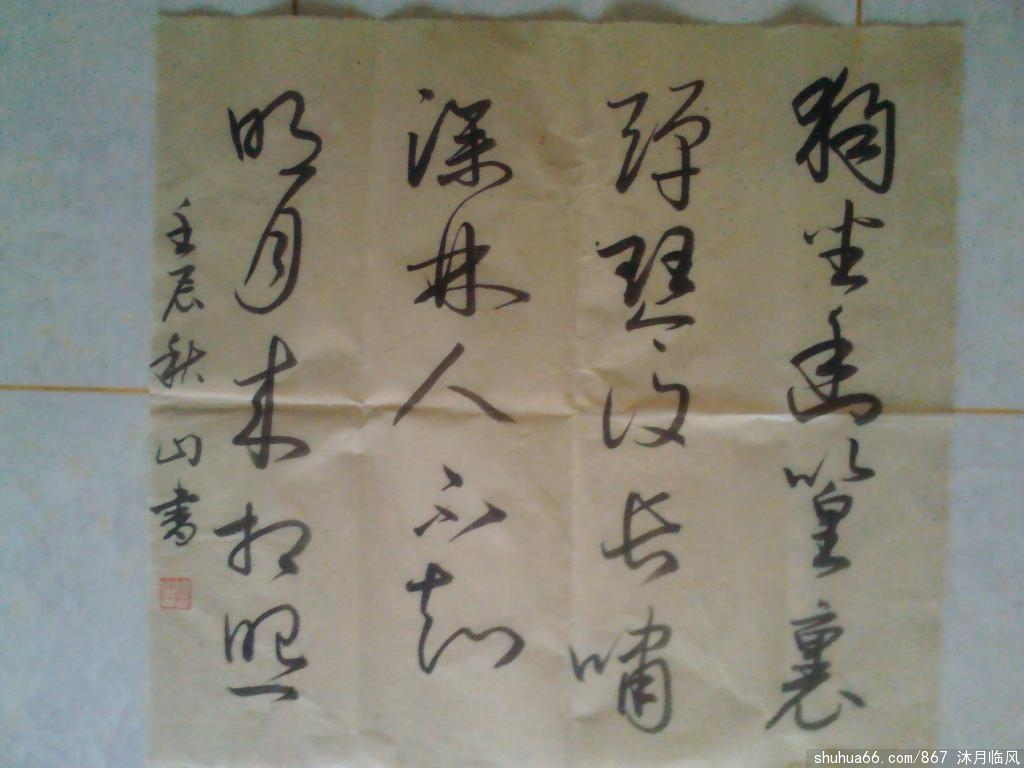 獨坐幽篁裏
彈琴復長嘯
深林人不知
明月来相照
壬辰秋山書
shuhua66.com/867 沐月临风